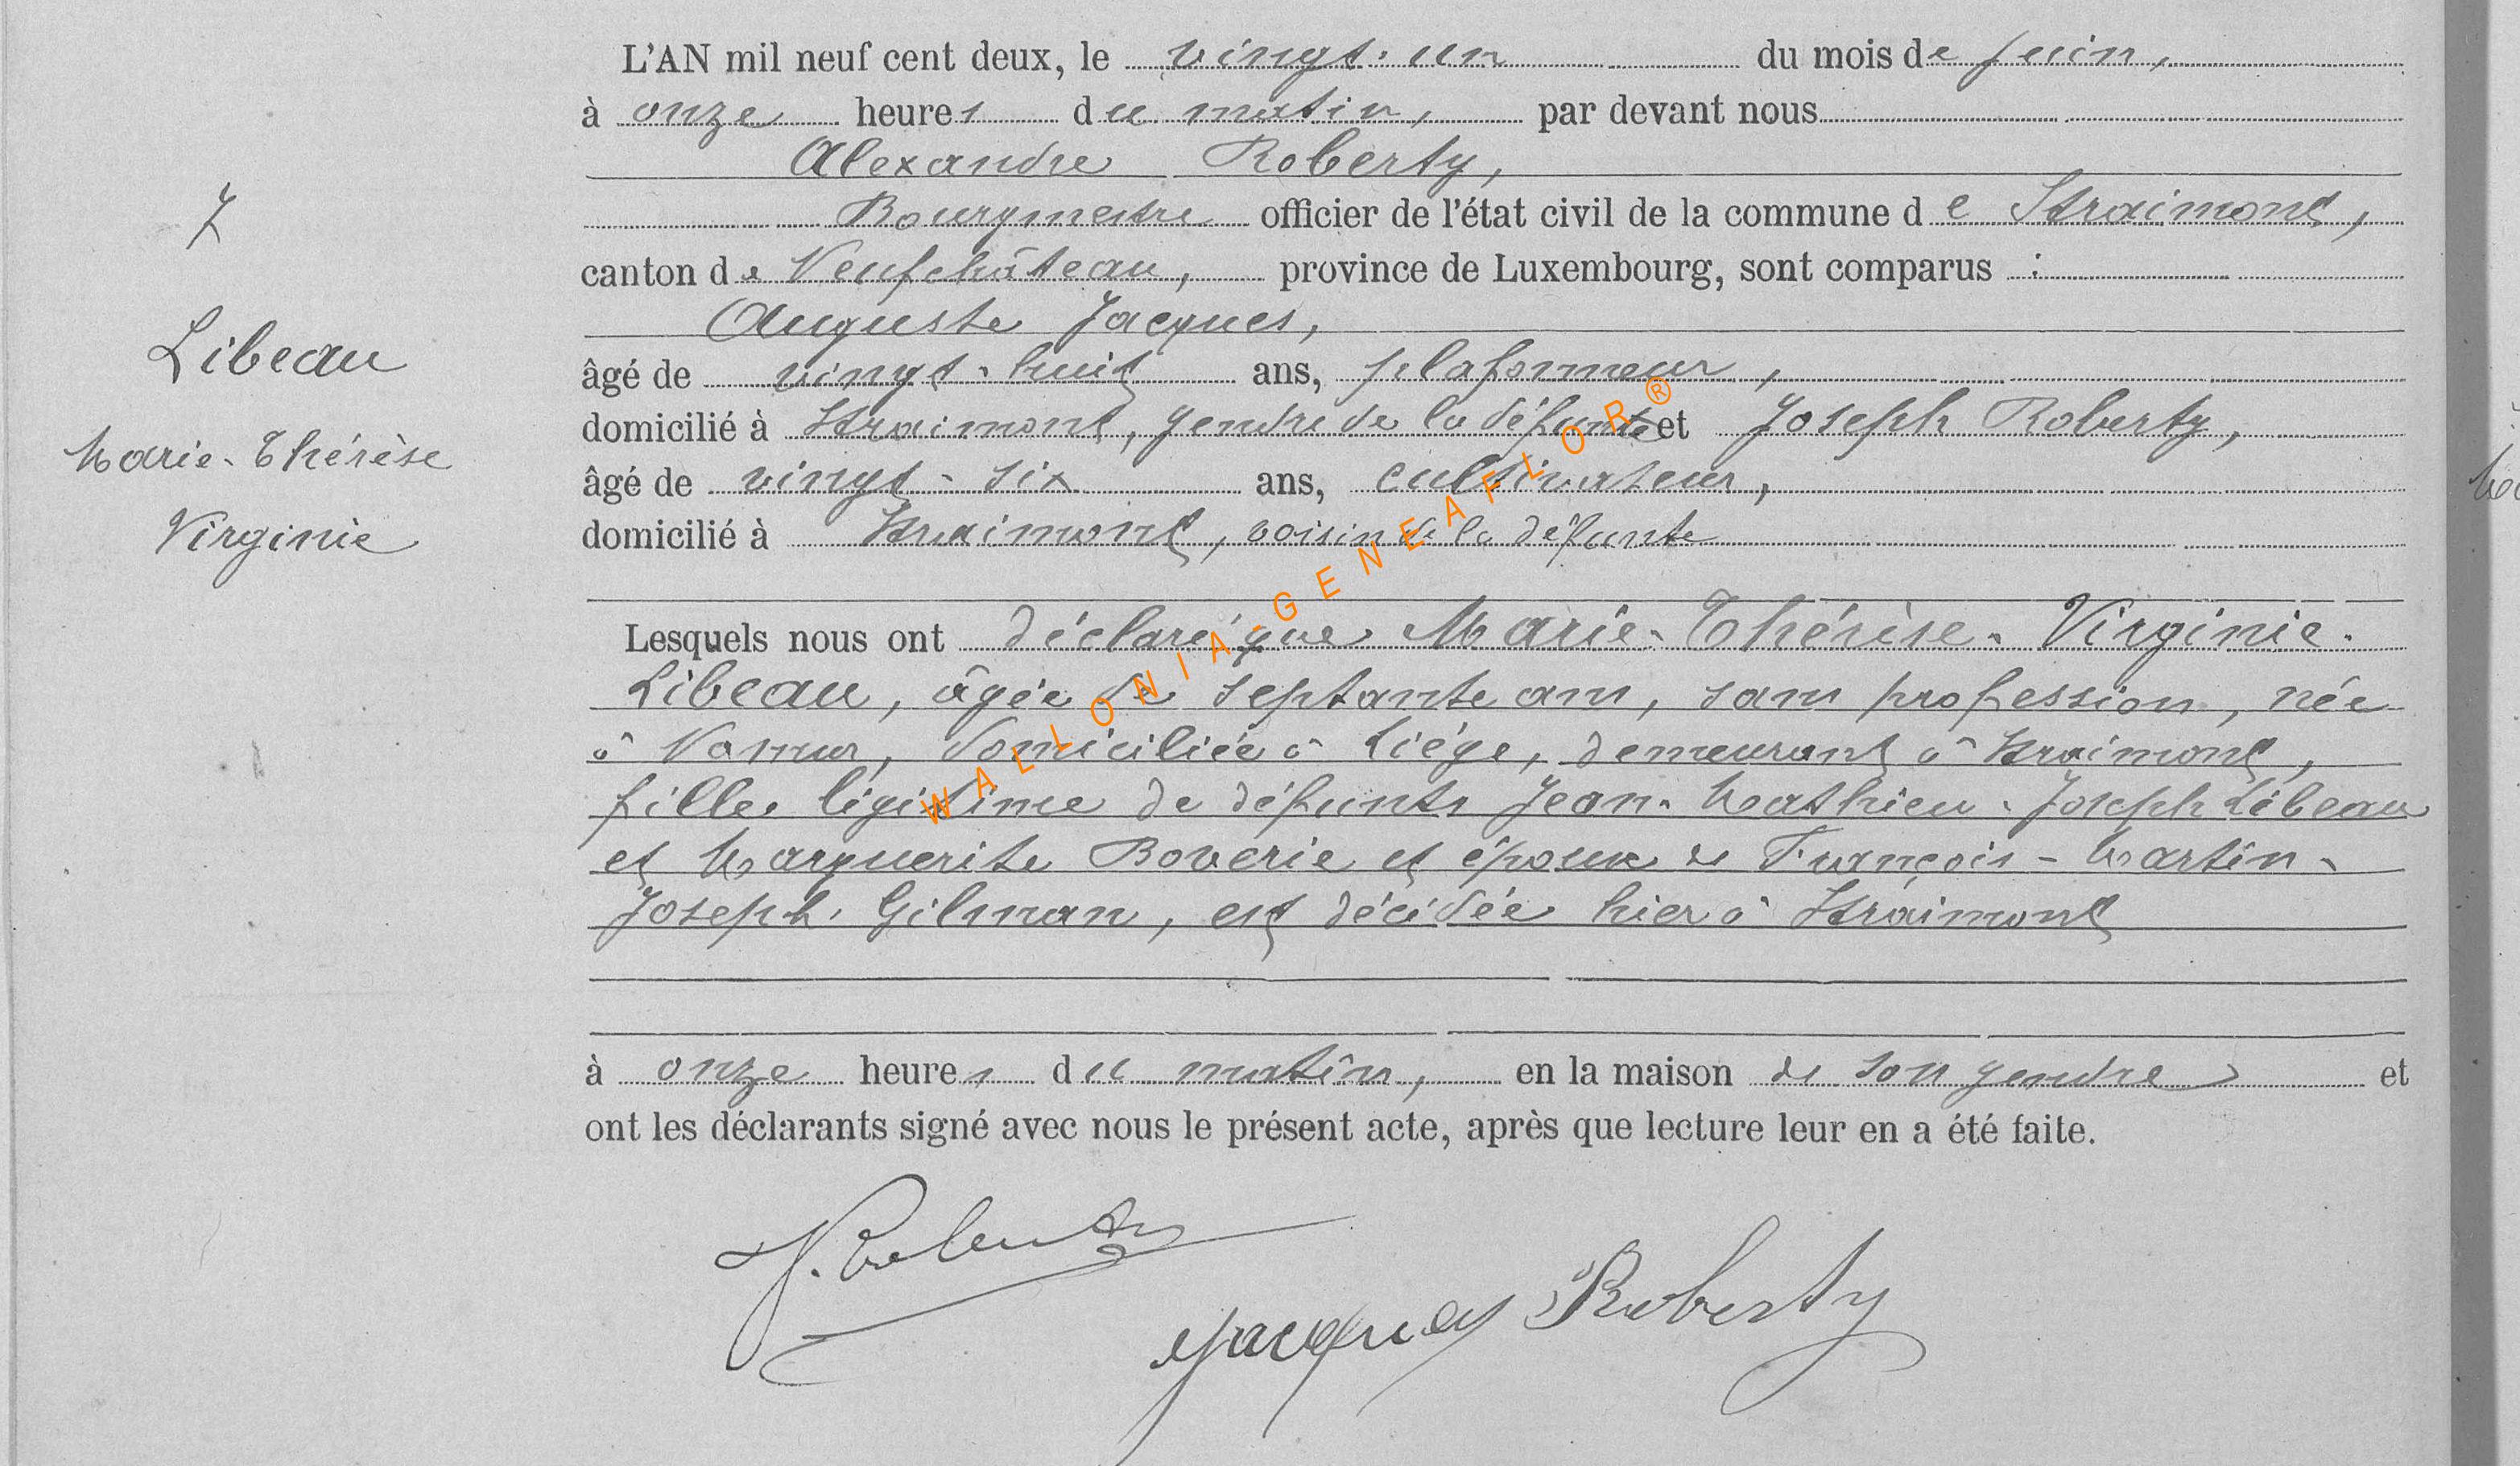 L'AN mil neuf cent deux, le vingt-un du mois de juin,
à onze heures du matin, par devant nous
Alexandre Roberty,
Bourgmestre officier de l'état civil de la commune de Straimont,
canton de Neufchâteau, province de Luxembourg, sont comparus :
Auguste Jacques,
âgé de vingt-huit ans, plafonneur,
domicilié à Straimont, gendre de la défunte et Joseph Roberty,
âgé de vingt-six ans, cultivateur,
domicilié à Straimont, voisin de la défunte
7
Libeau
Marie-Thérèse
Virginie
Lesquels nous ont déclaré que Marie-Thérèse-Virginie-
Libeau, âgée de septante ans, sans profession, née
à Namur, domiciliée à Liége, demeurant à Straimont,
fille légitime de défunts Jean-Mathieu-Joseph Libeau
et Marguerite Boverie et épouse de François-Martin-
Joseph Gilman, est décédée hier à Straimont
à onze heures du matin, en la maison de son gendre et
ont les déclarants signé avec nous le présent acte, après que lecture leur en a été faite.
Jacques Roberty
WALLONIA-GENEAFLOR®